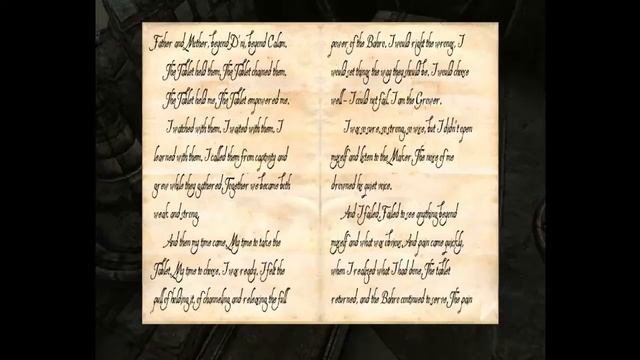 Father and Mother, beyond D'ni, beyond Calam.
The Tablet held them, The Tablet chained them.
The Tablet held me, The Tablet empowered me.
I watched with them, I waited with them, I
learned with them. I called them from captivity and
grew while they gathered. Together we became both
weak and strong.
And then my time came. My time to take the
Tablet, My time to choose. I was ready, I felt the
pull of holding it, of channeling and releasing the full
power of the Bahro, I would right the wrongs, I
would set things the way they should be, I would choose
well - I could not fail, I am the Grower.
I was so sure, so strong, so wise, but I didn't open
myself and listen to the Maker. The noise of me
drowned his quiet voice.
And I failed. Failed to see anything beyond
myself and what was obvious. And pain came quickly,
when I realized what I had done. The tablet
returned, and the Bahro continued to serve. The pain